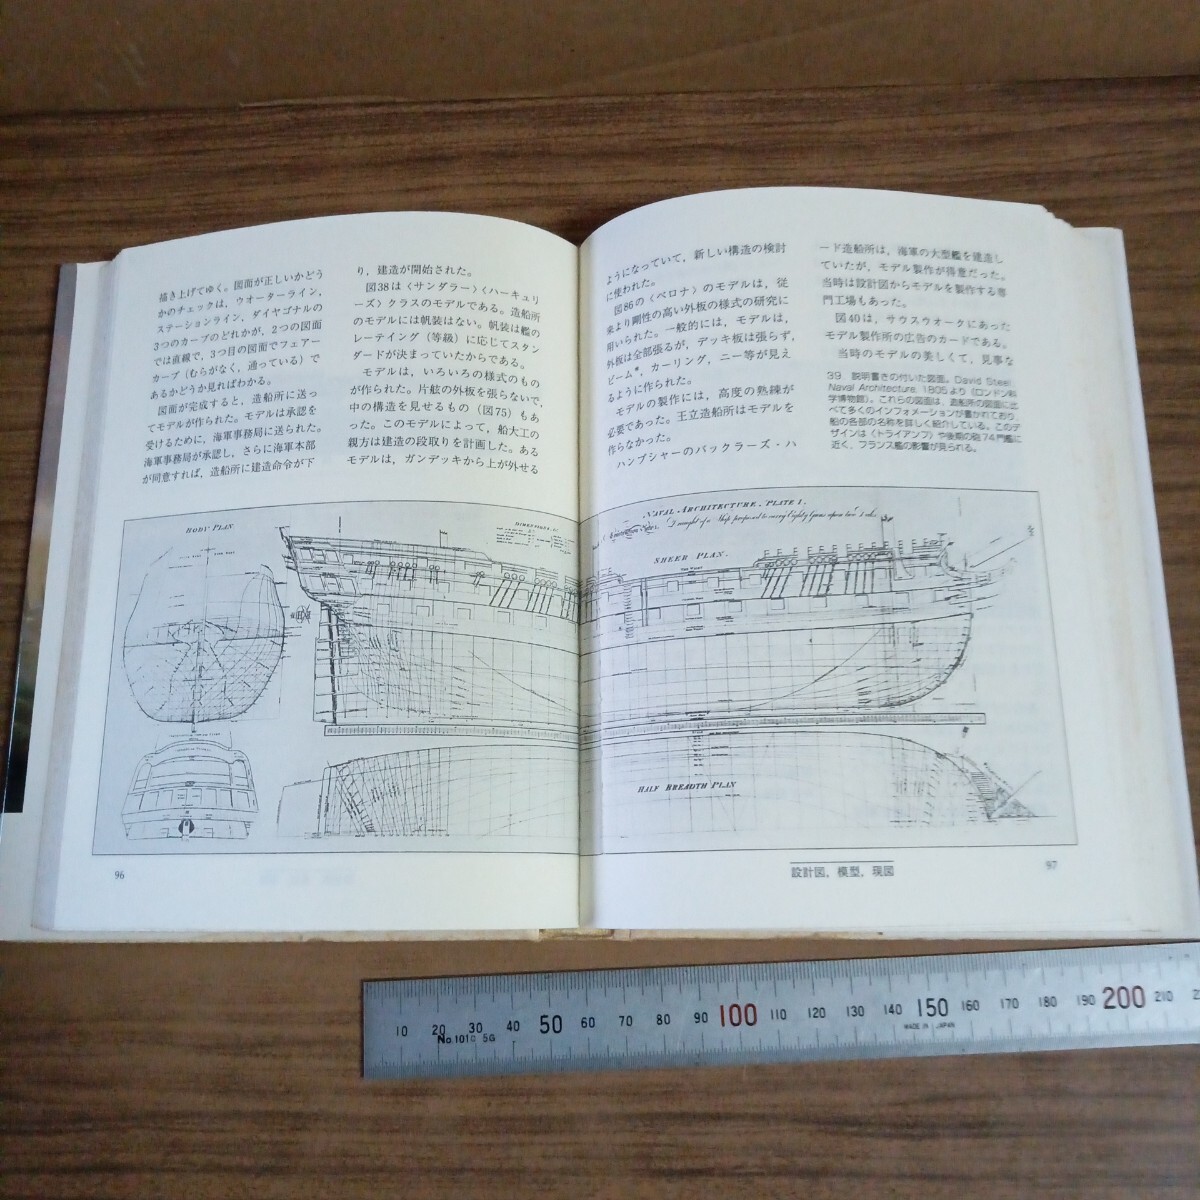 描き上げてゆく。図面が正しいかどう
かのチェックは，ウオーターライン，
ステーションライン，ダイヤゴナルの
3つのカーブのどれかが，2つの図面
では直線で，3つ目の図面でフェアー
カーブ（むらがなく，通っている）で
あるかどうか見ればわかる。
図面が完成すると，造船所に送っ
てモデルが作られた。モデルは承認を
受けるために，海軍事務局に送られた。
海軍事務局が承認し，さらに海軍本部
が同意すれば，造船所に建造命令が下
り，建造が開始された。
図38は〈サンダラー〉〈ハーキュリ
ーズ〉クラスのモデルである。造船所
のモデルには帆装はない。帆装は艦の
レーテイング（等級）に応じてスタン
ダードが決まっていたからである。
モデルは，いろいろの様式のもの
が作られた。片舷の外板を張らないで，
中の構造を見せるもの（図75）もあ
った。このモデルによって，船大工の
親方は建造の段取りを計画した。ある
モデルは，ガンデッキから上が外せる
ようになっていて，新しい構造の検討
に使われた。
図86の〈ベロナ〉のモデルは，従
来より剛性の高い外板の様式の研究に
用いられた。一般的には，モデルは，
外板は全部張るが，デッキ板は張らず，
ビーム*，カーリング，ニー等が見え
るように作られた。
モデルの製作には，高度の熟練が
必要であった。王立造船所はモデルを
作らなかった。
ハンプシャーのバックラーズ・ハ
ード造船所は，海軍の大型艦を建造し
ていたが，モデル製作が得意だった。
当時は設計図からモデルを製作する専
門工場もあった。
図40は，サウスウォークにあった
モデル製作所の広告のカードである。
当時のモデルの美しくて，見事な
39. 説明書きの付いた図面。David Steel,
Naval Architecture, 1805より（ロンドン科
学博物館）。これらの図面は，造船所の図面に比
べて多くのインフォメーションが書かれており，
船の各部の名称を詳しく紹介している。このデ
ザインは〈トライアンフ〉や後期の砲74門艦に
近く，フランス艦の影響が見られる。
BODY PLAN
DIMENSIONS, &c.
NAVAL ARCHITECTURE. PLATE 1.
Draught of a Ship proposed to carry Eighty Guns upon two Decks
SHEER PLAN.
HALF BREADTH PLAN
96
設計図，模型，現図
97
10 20 30 40 50 60 70 80 90 100 110 120 130 140 150 160 170 180 190 200 210
MADE IN JAPAN